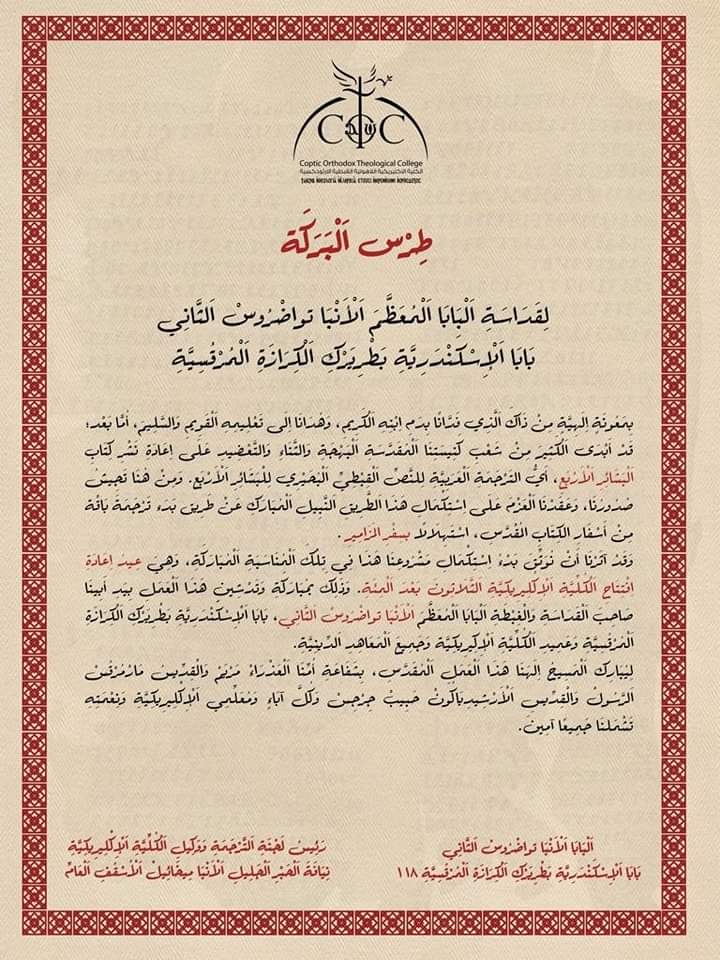 COC
Coptic Orthodox Theological College
الكلية الاكليريكية اللاهوتية القبطية الارثوذكسية
طِرْس اَلْبَرَكَة
لِقَدَاسَةِ اَلْبَابَا اَلْمُعَظَّمَ اَلْأَنْبَا تواضْرُوسْ اَلثَّانِي
بَابَا اَلْإِسْكَنْدَرِيَّةِ بَطْرِيَرْكِ اَلْكِرَازَةِ اَلْمُرْقُسِيَّةِ
بِمَعُونَةٍ إِلَهِيَّةٍ مِنْ ذَاكَ اَلَّذِي فَدَّانَا بِدَمِ اِبْنِهِ اَلْكَرِيمِ، وَهَدَانَا إِلَى تَعْلِيمِهِ اَلْقَوِيمِ وَالسَّلِيمِ، أَمَّا بَعْدُ؛
قَدْ أَبْدَى اَلْكَثِيرَ مِنْ شَعْبِ كَنِيسَتِنَا اَلْمُقَدَّسَةِ اَلْبَهْجَةِ وَالثَّنَاءِ وَالتَّعْضِيدِ عَلَى إِعَادَةِ نَشْرِ كِتَابِ
اَلْبَشَائِرِ اَلْأَرْبَعِ، أَيُّ اَلتَّرْجَمَةِ اَلْعَرَبِيَّةِ لِلنَّصِّ اَلْقِبْطِيِّ اَلْبُحَيْرِي لِلْبَشَائِرِ اَلْأَرْبَعِ. وَمِنْ هُنَا تَجِيشُ
صُدُورُنَا، وَعَقَدْنَا اَلْعَزْمَ عَلَى اِسْتِكْمَالِ هَذَا اَلطَّرِيقِ اَلنَّبِيلِ اَلْمُبَارَكِ عَنْ طَرِيقِ بَدْءِ تَرْجَمَةِ بَاقَة
مِنْ أَسْفَارِ الكتَابِ المُقَدَّسِ، اسْتِهْلَالًا بِسِفْرِ المَزَامِير.
وَقَدْ آثَرْنَا أَنْ نُوَثِّقَ بَدْءَ اِسْتِكْمَالِ مَشْرُوعِنَا هَذَا فِي تِلْكَ اَلْمُنَاسَبَةِ اَلْمُبَارَكَةِ، وَهِيَ عِيدُ إِعَادَةِ
اِفْتِتَاحِ اَلْكُلِّيَّةِ اَلْإِكْلِيرِيكِيَّةِ اَلثَّلَاثُونَ بَعْدَ اَلْمِئَةِ. وَذَلِكَ بِمُبَارَكَةِ وَتَدْشِينِ هَذَا اَلْعَمَلِ بِيَدِ أَبِينَا
صَاحِبَ اَلْقَدَاسَةِ وَالْغِبْطَةِ اَلْبَابَا اَلْمُعَظَّمِ اَلْأَنْبَا تواضْرُوسْ اَلثَّانِي، بَابَا اَلْإِسْكَنْدَرِيَّةِ بَطْرِيَرْكِ اَلْكِرَازَةِ
اَلْمُرْقُسِيَّةِ وَعَمِيدِ اَلْكُلِّيَّةِ اَلْإِكْلِيرِيكِيَّةِ وَجَمِيعِ اَلْمَعَاهِدِ اَلدِّينِيَّةِ.
لِيُبَارِكَ اَلْمَسِيحُ إِلَهُنَا هَذَا اَلْعَمَلِ اَلْمُقَدَّسِ، بِشَفَاعَةِ أُمِّنَا اَلْعَذْرَاءُ مَرْيَمْ وَالْقِدِّيسِ مَارْمَرْقُسْ
اَلرَّسُولُ وَالْقِدِّيسِ اَلْأَرْشِيدِيَاكُونْ حَبِيبْ جِرْجِسْ وَكُلَّ آبَاءٍ وَمُعَلِّمِي اَلْإِكْلِيرِيكِيَّةِ وَنِعْمَتِهِ
تَشْمَلُنَا جَمِيعًا آمِينَ.
اَلْبَابَا اَلْأَنْبَا تواضْرُوسْ اَلثَّانِي
بَابَا اَلْإِسْكَنْدَرِيَّةِ بَطْرِيَرْكِ اَلْكِرَازَةِ اَلْمُرْقُسِيَّةِ ١١٨
رَئِيسُ لَجْنَةِ اَلتَّرْجَمَةِ وَوَكِيلِ اَلْكُلِّيَّةِ اَلْإِكْلِيرِيكِيَّةِ
نِيَافَةَ اَلْحَبْرِ اَلْجَلِيلِ اَلْأَنْبَا مِيخَائِيلْ اَلْأُسْقُفِ اَلْعَامِّ